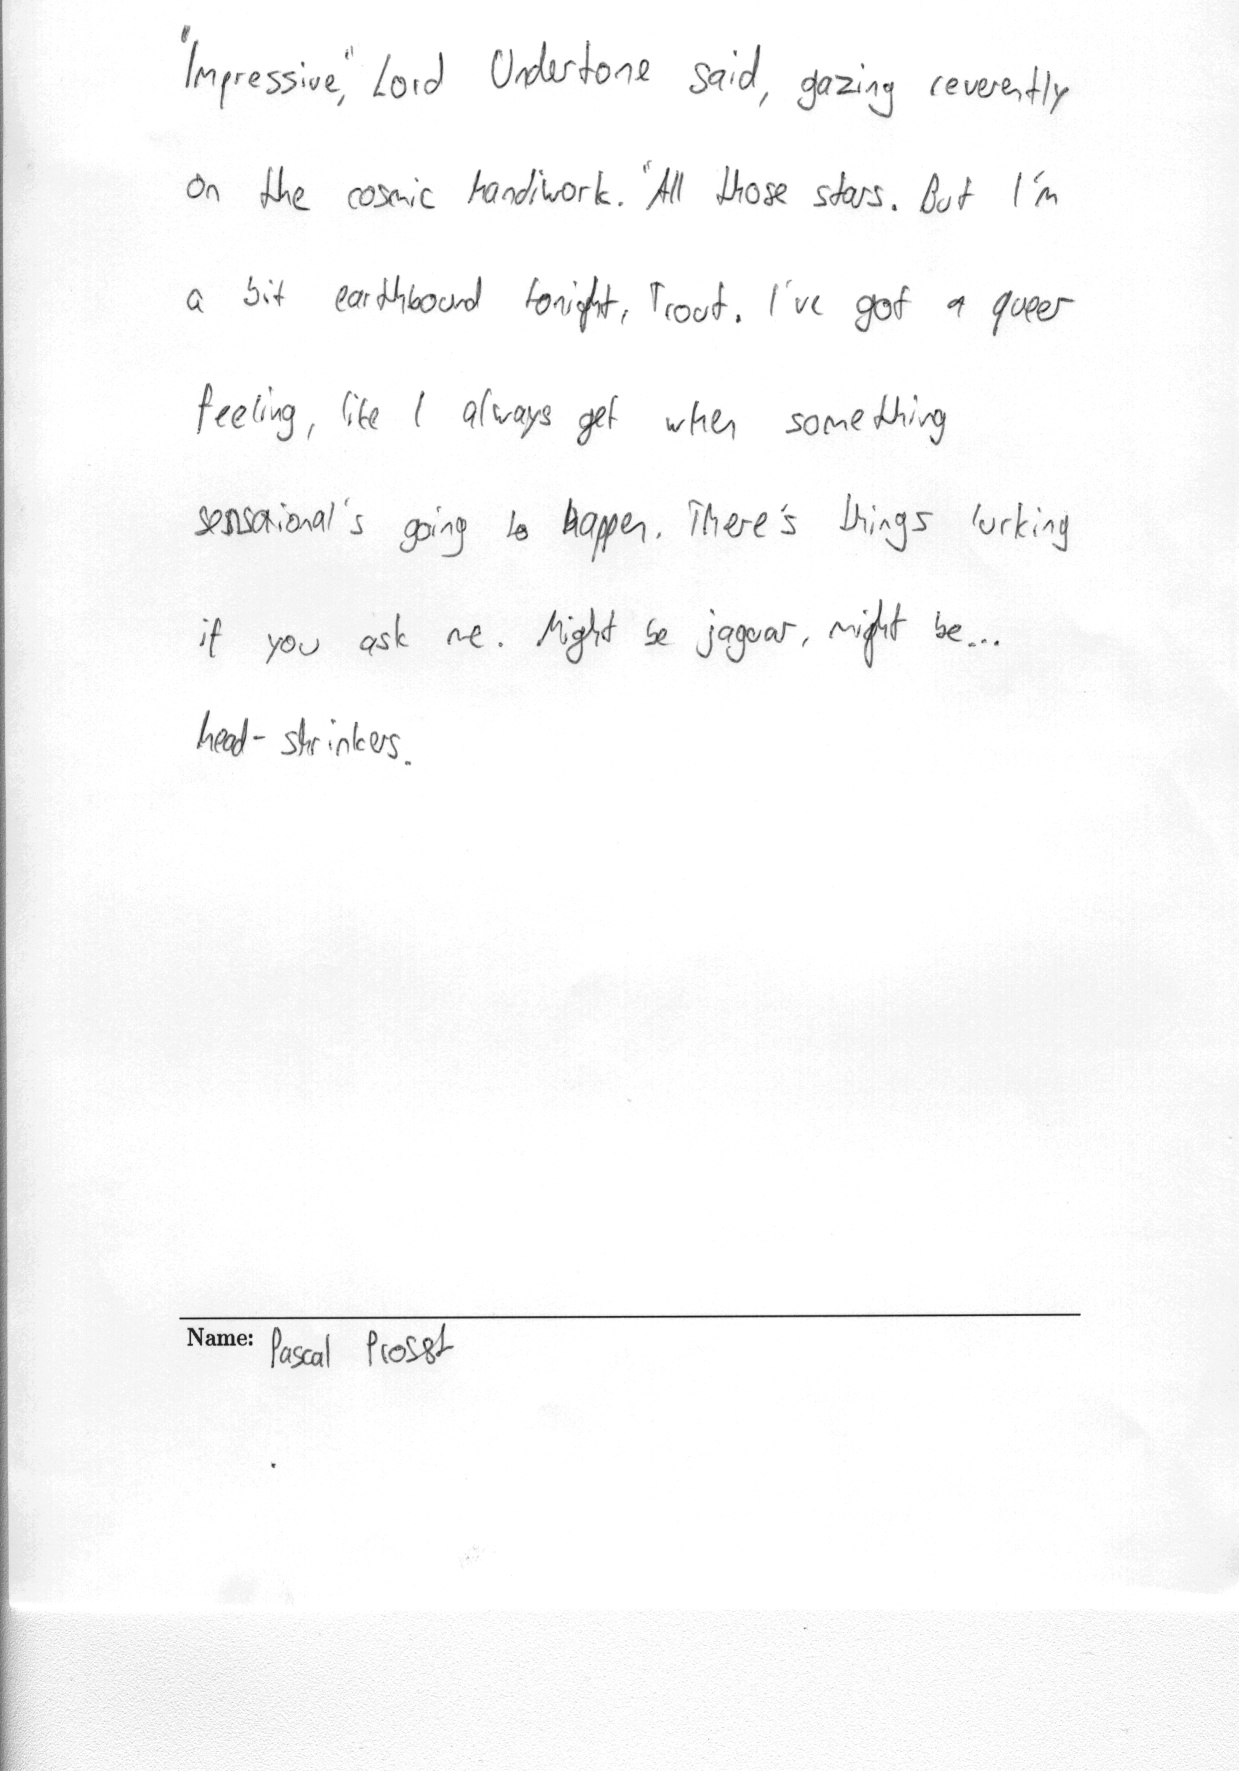 "Impressive," Lord Undertone said, gazing reverently
on the cosmic handiwork. "All those stars. But I'm
a bit earthbound tonight, Trout. I've got a queer
feeling, like I always get when something
sensaional's going to happen. There's things lurking
if you ask me. Might be jaguar, might be...
head-shrinkers.
Name: Pascal